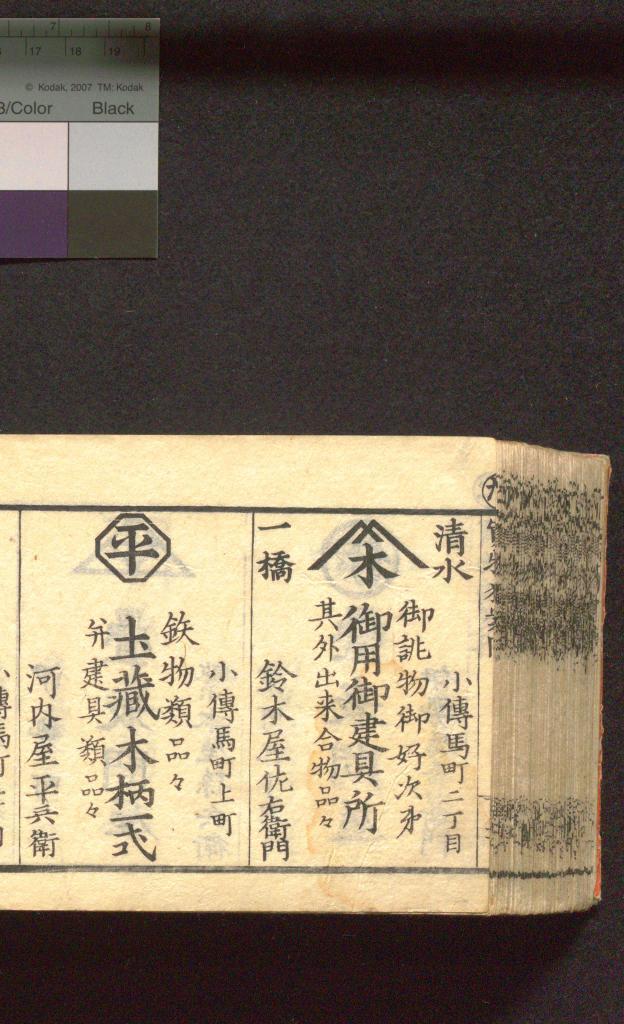 7 8
17 18 19
© Kodak, 2007 TM: Kodak
3/Color Black
清水
小傳馬町二丁目
御誂物御好次第
木
御用御建具所
其外出来合物品々
一橋
鈴木屋佐右衛門
小傳馬町上町
鉄物類品々
平
土藏木柄一式
并建具類品々
河内屋平兵衛
小傳馬町